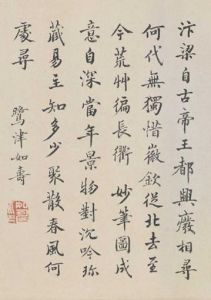 汴梁自古帝王都興廢相尋
何代無獨惜徽欽從北去至
今荒艸徧長衢 妙筆圖成
意自深當年景物對沉吟珍
藏易主知多少聚散春風何
處尋 鷺津如壽